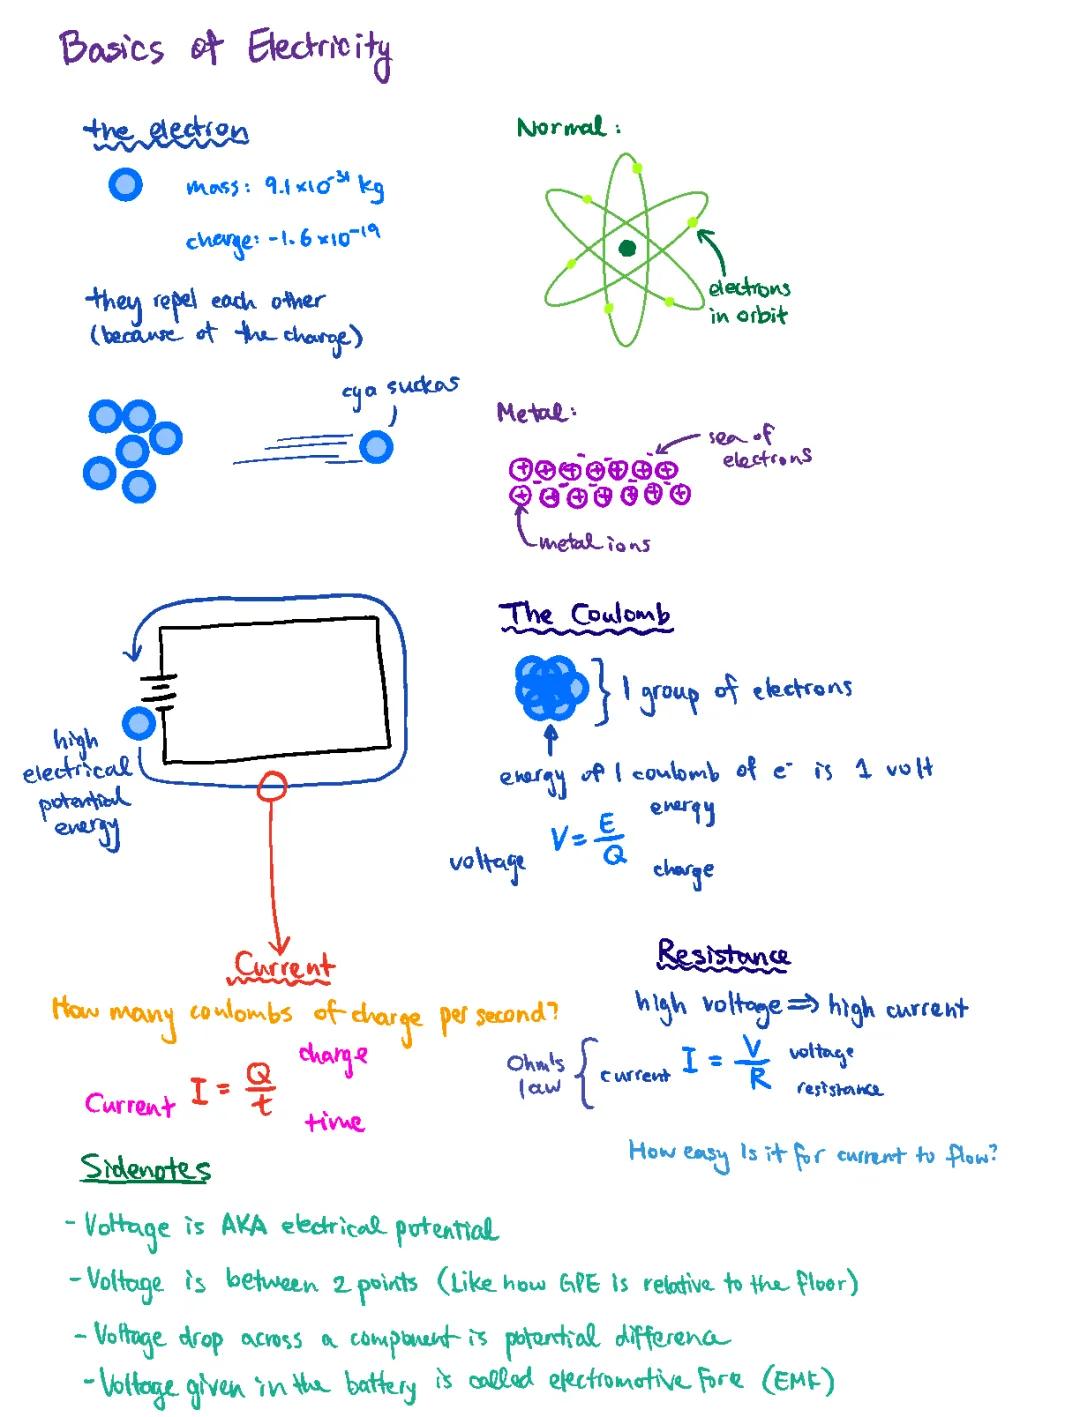 Basics of Electricity
the electron
mass: 9.1×10⁻³¹ kg
charge: -1.6×10⁻¹⁹
they repel each other
(because of the charge)
cya suckas
Normal:
electrons
in orbit
Metal:
sea of
electrons
+ + + + + + +
+ + + + + + +
metal ions
high
electrical
potential
energy
The Coulomb
} 1 group of electrons
energy of 1 coulomb of e⁻ is 1 volt
energy
voltage V = E/Q
charge
Current
How many coulombs of charge per second?
charge
Current I = Q/t
time
Resistance
high voltage ⇒ high current
Ohm's
law
{ current I = V/R voltage
resistance
How easy is it for current to flow?
Sidenotes
- Voltage is AKA electrical potential
- Voltage is between 2 points (Like how GPE is relative to the floor)
- Voltage drop across a component is potential difference
- Voltage given in the battery is called electromotive force (EMF)